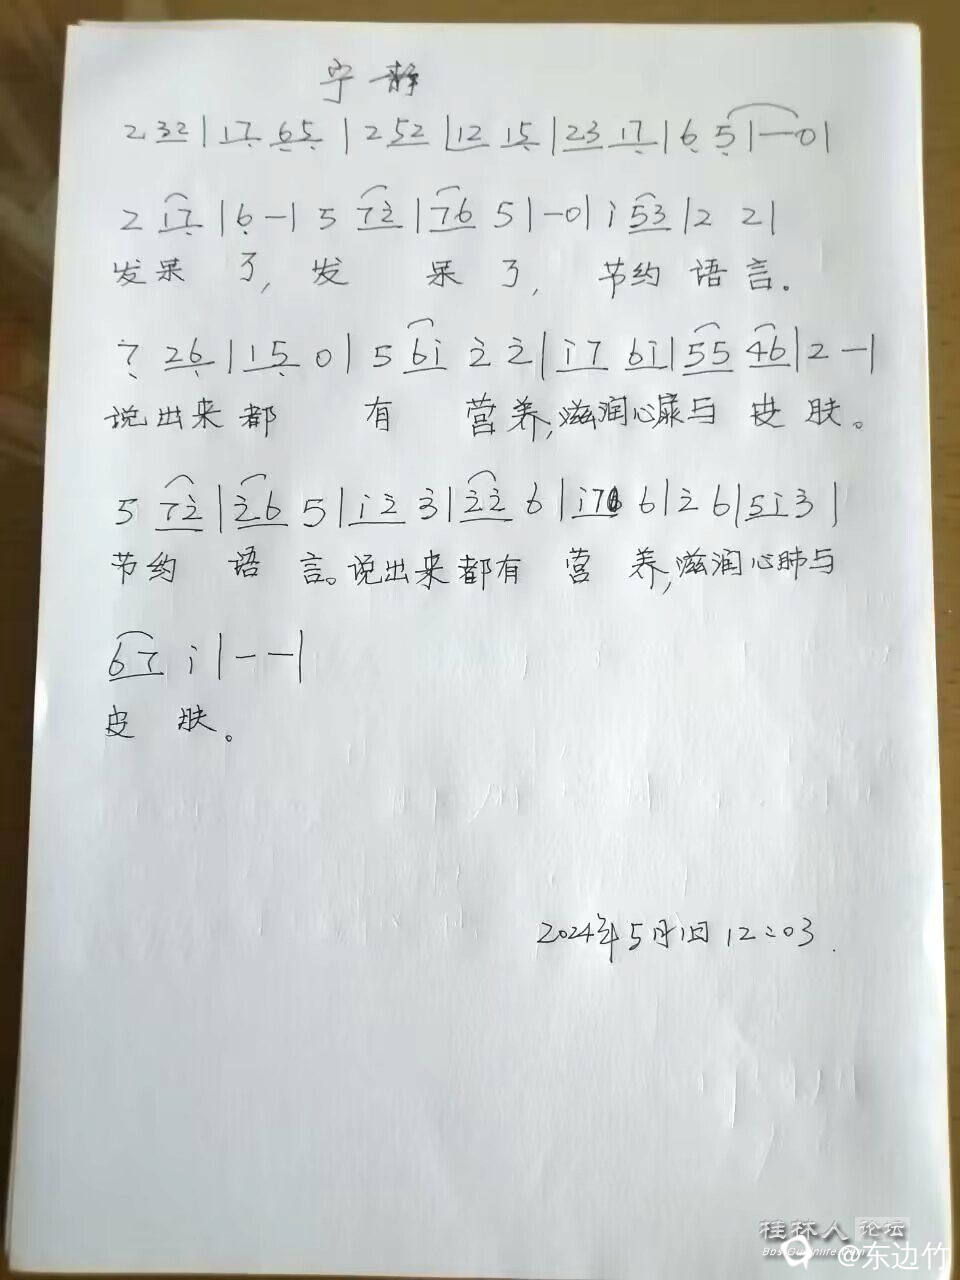 宁静
2 32 | 17 65 | 2 52 | 12 15 | 23 17 | 6 5 | — 0 |
2 i7 | 6 — | 5 72̇ | 76 5 | — 0 | i 53 | 2 2 |
发呆了，发 呆了， 节约语言。
7 26 | 15 0 | 5 6i 2̇ 2̇ | i7 6i | 55 46 | 2 — |
说出来都 有 营养，滋润心尿与皮肤。
5 72̇ | 2̇6 5 | i2̇ 3̇ | 2̇2̇ 6 | i76 6 | 2̇ 6 | 5i 3 |
节约 语 言。说出来都有 营 养，滋润心肺与
67 i | — — |
皮 肤。
2024年5月1日 12:03.
桂林人论坛
@东边竹